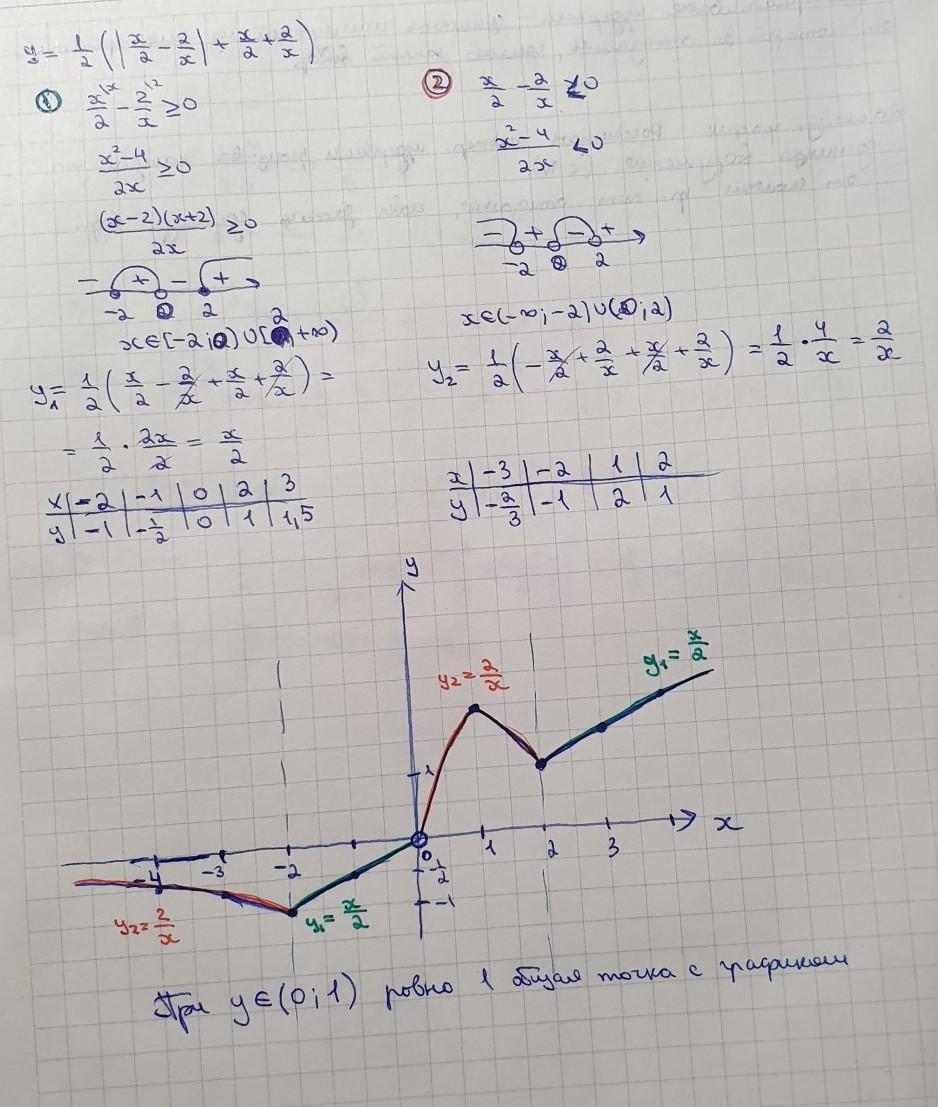 y = 1/2 (|x/2 - 2/x| + x/2 + 2/x)
① x\x/2 - 2\2/x ≥ 0
x²-4/2x ≥ 0
(x-2)(x+2)/2x ≥ 0
- + - +
-2 0 2
x∈[-2;0)∪[2;+∞)
y₁ = 1/2 (x/2 - 2/x + x/2 + 2/x) =
= 1/2 · 2x/2 = x/2
x | -2 | -1 | 0 | 2 | 3
y | -1 | -1/2 | 0 | 1 | 1,5
② x/2 - 2/x < 0
x²-4/2x < 0
- + - +
-2 0 2
x∈(-∞;-2)∪(0;2)
y₂ = 1/2 (-x/2 + 2/x + x/2 + 2/x) = 1/2 · 4/x = 2/x
x | -3 | -2 | 1 | 2
y | -2/3 | -1 | 2 | 1
y
y₂ = 2/x
y₁ = x/2
1
x
-4 -3 -2 0 1 2 3
-1/2
-1
y₂ = 2/x
y₁ = x/2
При y∈(0;1) ровно 1 общая точка с графиком